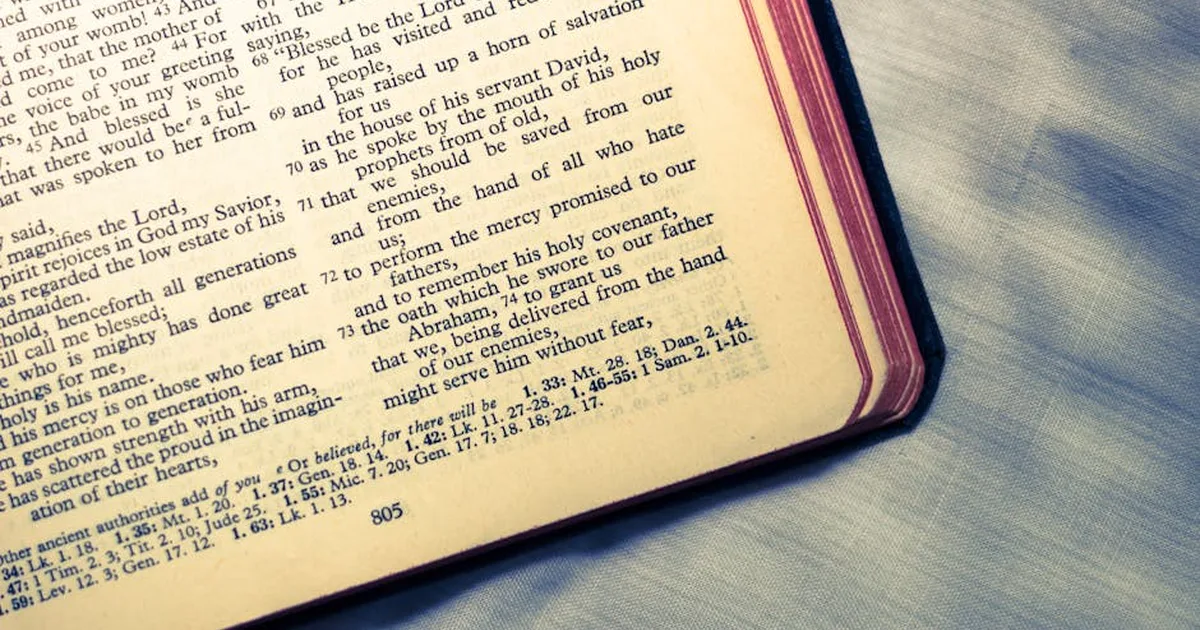 among women,
t of your womb! 43 And
d me, that the mother of
come to me? 44 For
voice of your greeting
the babe in my womb
45 And blessed is she
that there would be e a ful-
was spoken to her from
said,
magnifies the Lord,
rejoices in God my Savior,
regarded the low estate of his
henceforth all generations
call me blessed;
who is mighty has done great
things for me,
holy is his name.
his mercy is on those who fear him
generation to generation.
has shown strength with his arm,
has scattered the proud in the imagin-
ation of their hearts,
67
with the
saying,
68 “Blessed be the Lord
for he has visited and
people,
69 and has raised up a horn of salvation
for us
in the house of his servant David,
70 as he spoke by the mouth of his holy
prophets from of old,
71 that we should be saved from our
enemies,
and from the hand of all who hate
us;
72 to perform the mercy promised to our
fathers,
and to remember his holy covenant,
73 the oath which he swore to our father
Abraham, 74 to grant us
that we, being delivered from the hand
of our enemies,
might serve him without fear,
ther ancient authorities add of you e Or believed, for there will be 1. 33: Mt. 28. 18; Dan. 2. 44.
34: Lk. 1. 18. 1. 35: Mt. 1. 20. 1. 37: Gen. 18. 14. 1. 42: Lk. 11. 27-28. 1. 46-55: 1 Sam. 2. 1-10.
47: 1 Tim. 2. 3; Tit. 2. 10; Jude 25. 1. 55: Mic. 7. 20; Gen. 17. 7; 18. 18; 22. 17.
59: Lev. 12. 3; Gen. 17. 12. 1. 63: Lk. 1. 13.
805